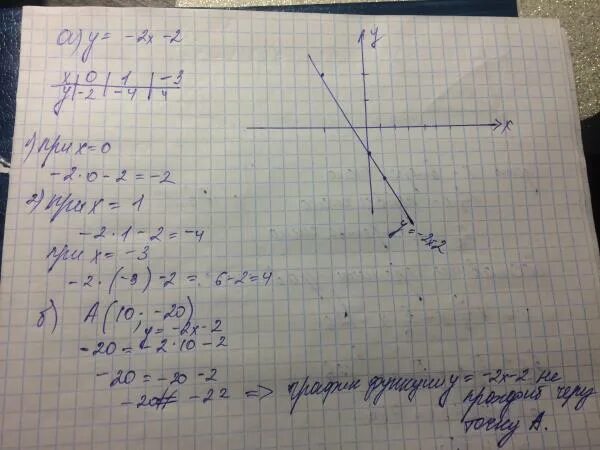 а) y = -2x -2
x | 0 | 1 | -3
y | -2 | -4 | 4
1) при x = 0
-2·0 - 2 = -2
2) при x = 1
-2·1 - 2 = -4
при x = -3
-2·(-3) -2 = 6-2=4
б) A(10; -20)
y = -2x - 2
-20 = -2·10 - 2
-20 = -20 - 2
-20 ≠ -22 => график функции y = -2x-2 не
проходит через
точку A.
y
x
y = -2x-2